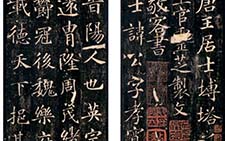 唐王居士塼塔
上官靈芝製文
敬客書
士諱公字孝寬
晉陽人也英宗
遠冑隆周茂緒
爵冠後魏
載德天下挹其